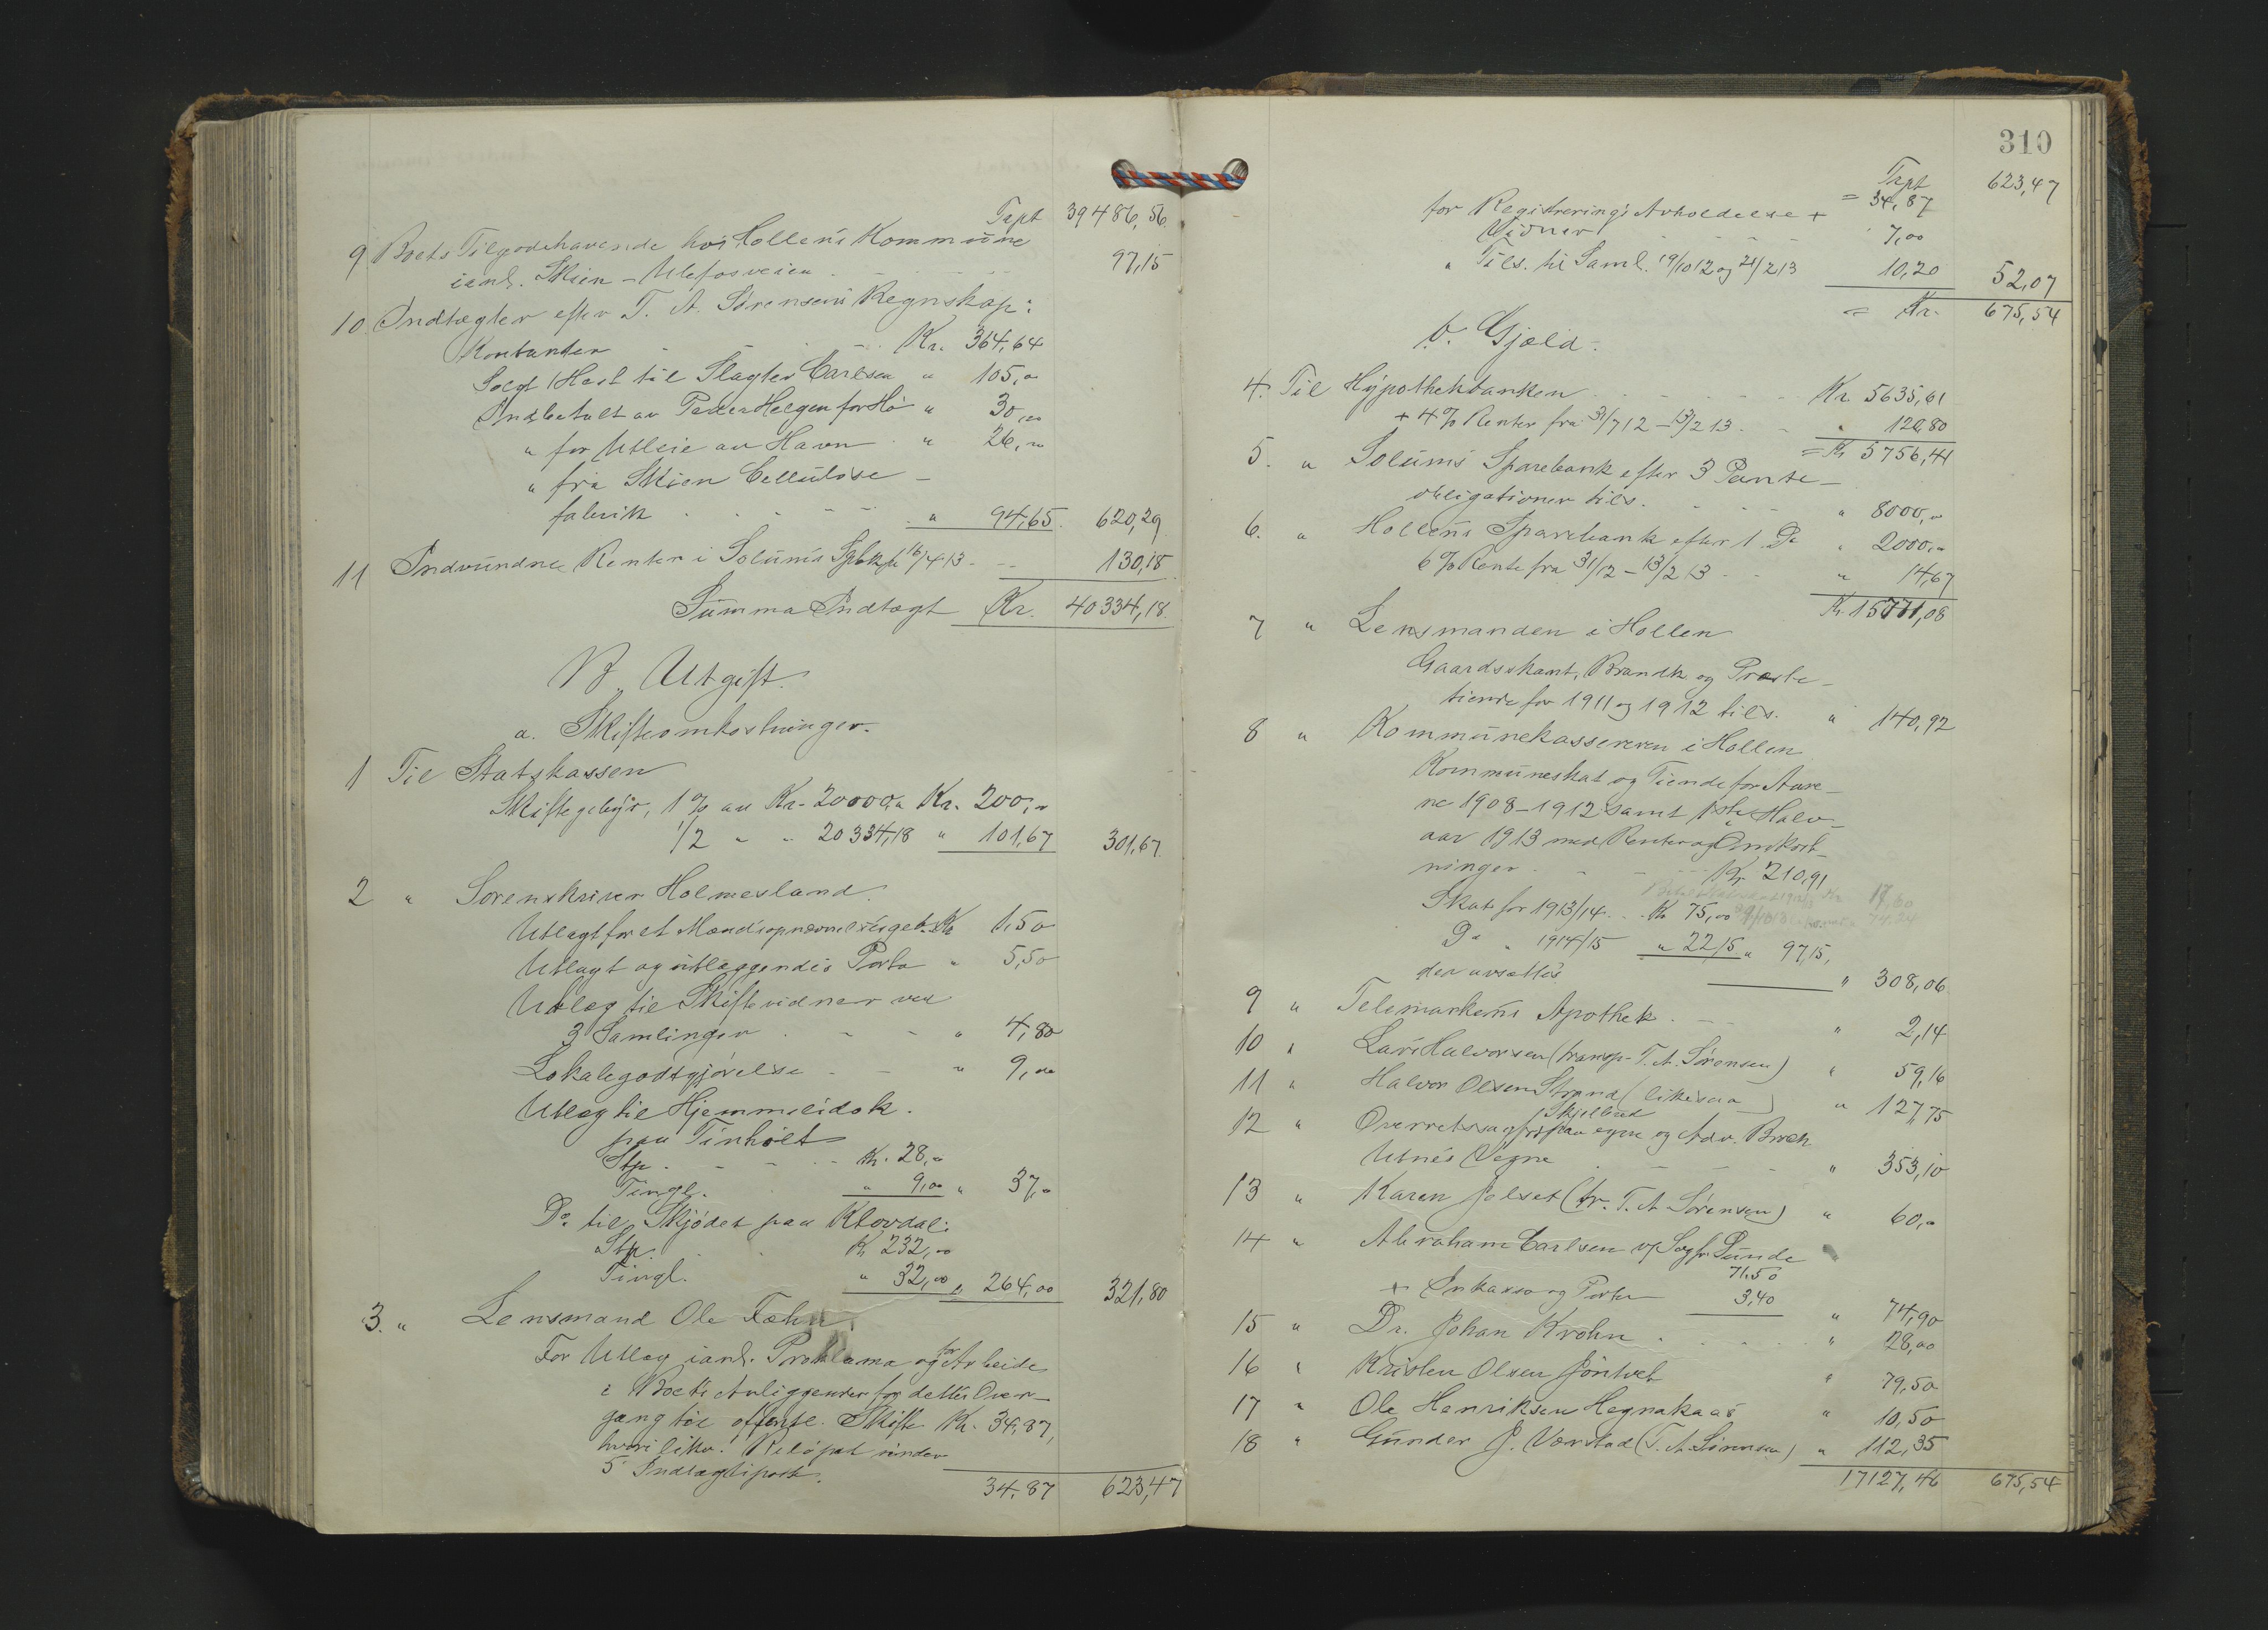 Trpt 39486,56
9 Boets Tilgodehavende hos Hollens Kommune
ianl. Skien-Ulefosveien . . . . 97,15
10 Indtægter efter T. A. Sørensens Regnskap:
Kontanter - - - Kr. 364,64
Solgt 1 Hest til Slagter Carlsen " 105,00
Indbetalt av Peder Helgen for Hø " 30,00
" for Utleie av Havn " 26,00
" fra Skien Cellulose-
fabrik . . . . " 94,65. 620,29
11 Indvundne Renter i Solums Spbk til 16/4 13 - - - 130,18
Summa Indtægt Kr. 40334,18
B. Utgift.
a. Skifteomkostninger.
1 Til Statskassen
Skiftegebyr, 1 % av Kr. 20000,00 Kr. 200,00
1/2 " " 20334,18 " 101,67 301,67
2 " Sorenskriver Holmesland.
Utlagt for et Mandsopnævnelsesgeb. Kr 1,50
Utlagt og utlæggendes Porto " 5,50
Utlæg til Skiftevidner ved
3 Samlinger . - - " 4,80
Lokalegodtgjørelse - - " 9,00
Utlæg til Hjemmelsdok.
paa Tinholt
Stp. - - - - Kr. 28,00
Tingl. " 9,00 " 37,00
Do. til Skjødet paa Klovdal:
Stp. . . Kr 232,00
Tingl. " 32,00 " 264,00 321,80
3. " Lensmand Ole Fæhn.
For Utlæg ianl. Proklama og for Arbeide
i Boets Anliggender før dettes Over-
gang til offentl. Skifte Kr. 34,87,
hvori likv. Beløpet under
5 Indtægtspost.
34,87 623,47
310
Trpt 623,47
= 34,87
for Registrerings Avholdelse +
Vidner - - - - 7,00
" Tils. til Saml. 19/10 12 og 21/2 13 10,20 52,07
= Kr. 675,54
b. Gjæld.
4. Til Hypothekbanken . . . . . Kr. 5635,61
+ 4 % Renter fra 31/7 12 - 13/2 13 - - " 120,80
= Kr 5756,41
5. " Solums Sparebank efter 3 Pante-
obligationer tils. . . . . " 8000,00
6. " Hollens Sparebank efter 1 Do " 2000,00
6 % Rente fra 31/12 - 13/2 13 - - " 14,67
Kr. 15771,08
7 " Lensmanden i Hollen
Gaardsskant, Brandk og Præste-
tiende for 1911 og 1912 tils. " 140,92
8 " Kommunekassereren i Hollen
Kommuneskat og Tiende for Aare-
ne 1908-1912 samt 1ste Halv-
aar 1913 med Renter og Omkost-
ninger . - - - Kr 210,91
Skat for 1913/14 . . Kr 75,00
Do " 1914/15 " 22,15 " 97,15,
der avsættes " 308,06
9 " Telemarkens Apothek . - - " 2,14
10 " Lars Halvorsen (transp. T. A. Sørensen) " 59,16
11 " Halvor Olsen Strand (likesaa) " 127,75
12 " Overretssagf. Skjelbred paa egne og Adv. Bræk
Utnes Vegne . - - - " 353,10
13 " Karen Jelset (tr. T. A Sørensen) " 60,00
14 " Abraham Carlsen v/ Sagf. Lunde
71,50
+ Inkasso og Porto 3,40 " 74,90
15 " Dr. Johan Krohn . . . . . " 28,00
16 " Kristen Olsen Jøntvet " 79,50
17 " Ole Henriksen Hegnakaas " 10,50
18 " Gunder J. Værstad (T. A. Sørensen) " 112,35
17127,46 675,54